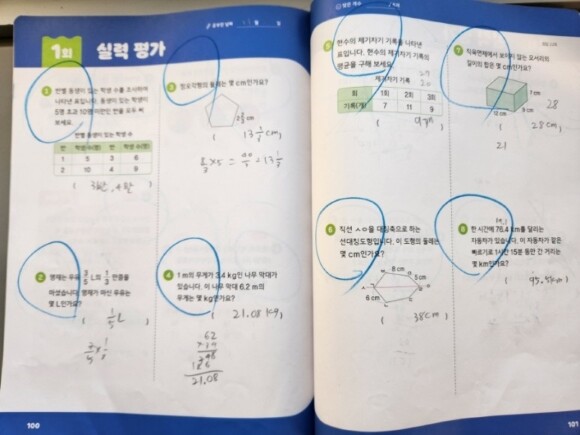 1회 실력 평가
1 반별 동생이 있는 학생 수를 조사하여
나타낸 표입니다. 동생이 있는 학생이
5명 초과 10명 미만인 반을 모두 써
보세요.
반별 동생이 있는 학생 수
반 학생 수(명) 반 학생 수(명)
1 5 3 6
2 10 4 9
( 3반, 4반 )
2
마셨습니다. 영재가 마신 우유는
몇 L인가요?
( 1/5 L )
3 정오각형의 둘레는 몇 cm인가요?
( 13 1/3 cm )
4 1 m의 무게가 3.4 kg인 나무 막대가
있습니다. 이 나무 막대 6.2 m의
무게는 몇 kg인가요?
( 21.08 kg )
62
21.08
100
5 현수의 제기차기 기록을 나타낸
표입니다. 현수의 제기차기 기록의
평균을 구해 보세요.
제기차기 기록
회 1회 2회 3회
기록(개) 7 11 9
( 9개 )
6 직선 ㅅㅇ을 대칭축으로 하는
선대칭도형입니다. 이 도형의 둘레는
몇 cm인가요?
8 cm
5 cm
6 cm
( 38cm )
7 직육면체에서 보이지 않는 모서리의
길이의 합은 몇 cm인가요?
7 cm
28
( 28 cm )
21
8 한 시간에 76.4 km를 달리는
자동차가 있습니다. 이 자동차가 같은
빠르기로 1시간 15분 동안 간 거리는
몇 km인가요?
( 95.5km )
101